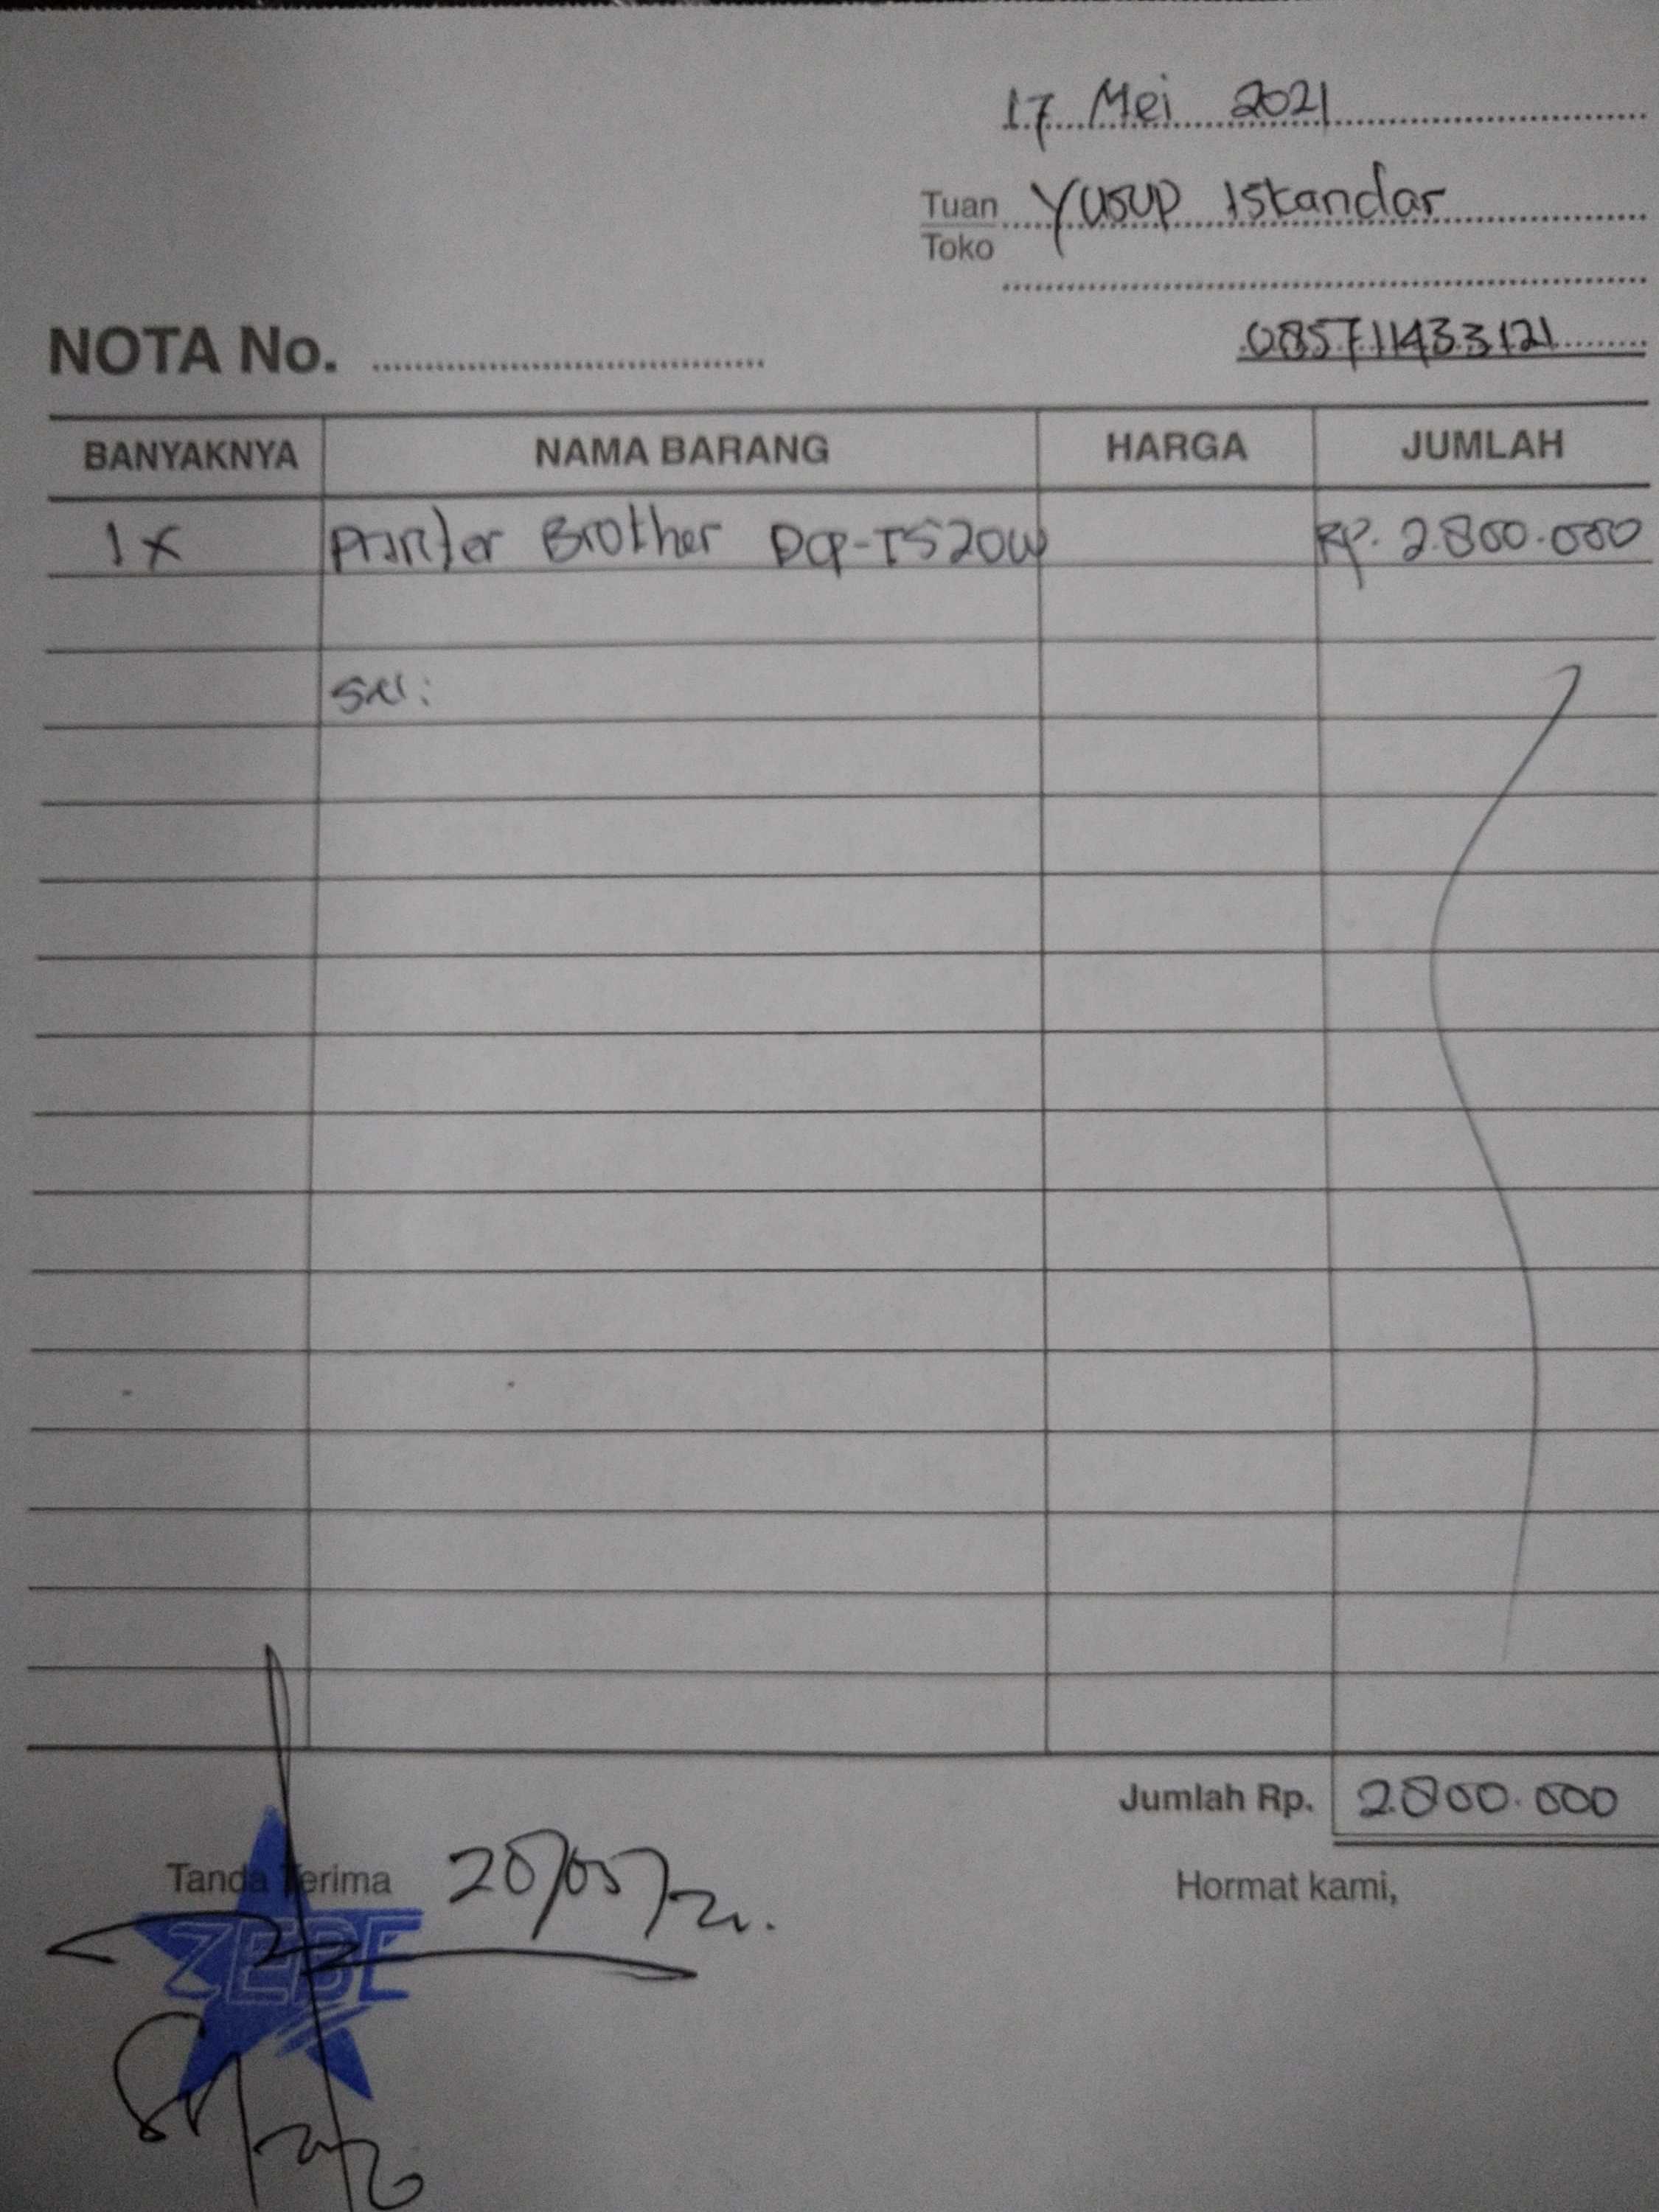 17 Mei 2021
Tuan Yusup Iskandar
Toko
NOTA No.
085711433121
BANYAKNYA NAMA BARANG HARGA JUMLAH
1x Printer Brother DCP-T520W Rp. 2.800.000
SN:
Jumlah Rp. 2.800.000
Tanda Terima
Hormat kami,
ZEBE